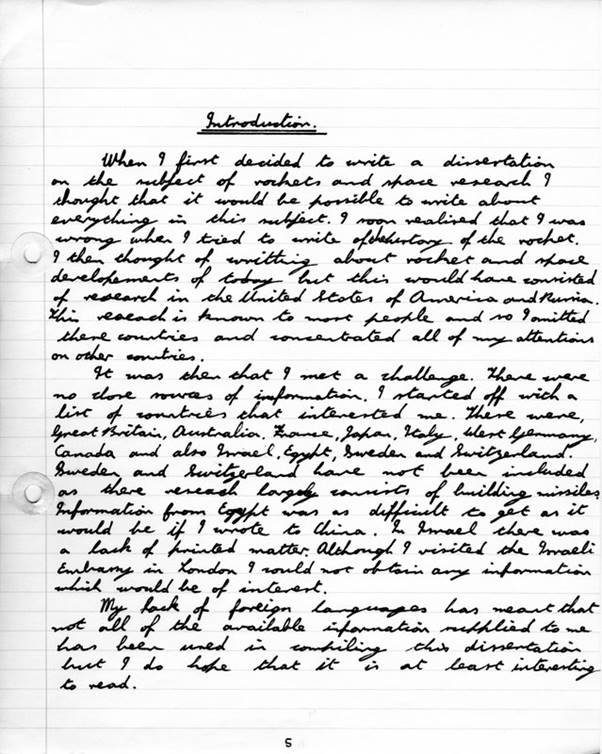 Introduction.
When I first decided to write a dissertation
on the subject of rockets and space research I
thought that it would be possible to write about
everything in this subject. I soon realised that I was
wrong when I tried to write of the history of the rocket.
I then thought of writting about rocket and space
developements of today but this would have consisted
of research in the United States of America and Russia.
This reseach is known to most people and so I omitted
these countries and concentrated all of my attentions
on other countries.
It was then that I met a challenge. There were
no close sources of information. I started off with a
list of countries that interested me. There were,
Great Britain, Australia, France, Japan, Italy, West Germany,
Canada and also Israel, Egypt, Sweden and Switzerland.
Sweden and Switzerland have not been included
as there reseach largely consists of building missiles
Information from Egypt was as difficult to get as it
would be if I wrote to China. In Israel there was
a lack of printed matter. Although I visited the Israeli
Embassy in London I could not obtain any information
which would be of interest.
My lack of foreign languages has meant that
not all of the available information supplied to me
has been used in compiling this dissertation
but I do hope that it is at least interesting
to read.
5